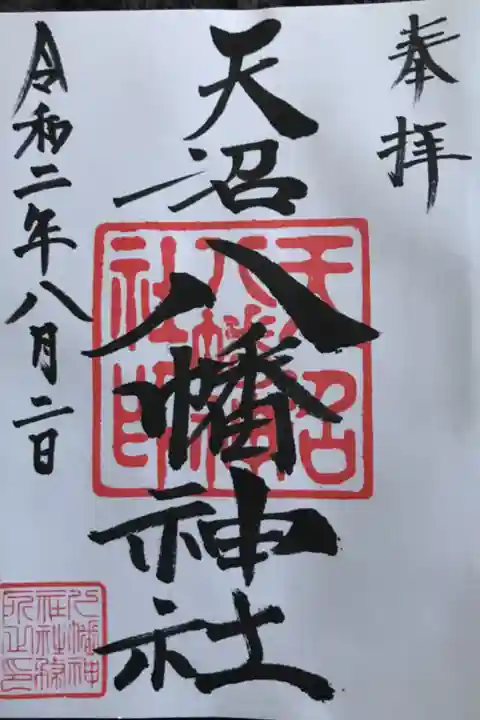 奉拝
天沼八幡神社
令和二年八月二日
天沼八幡神社印